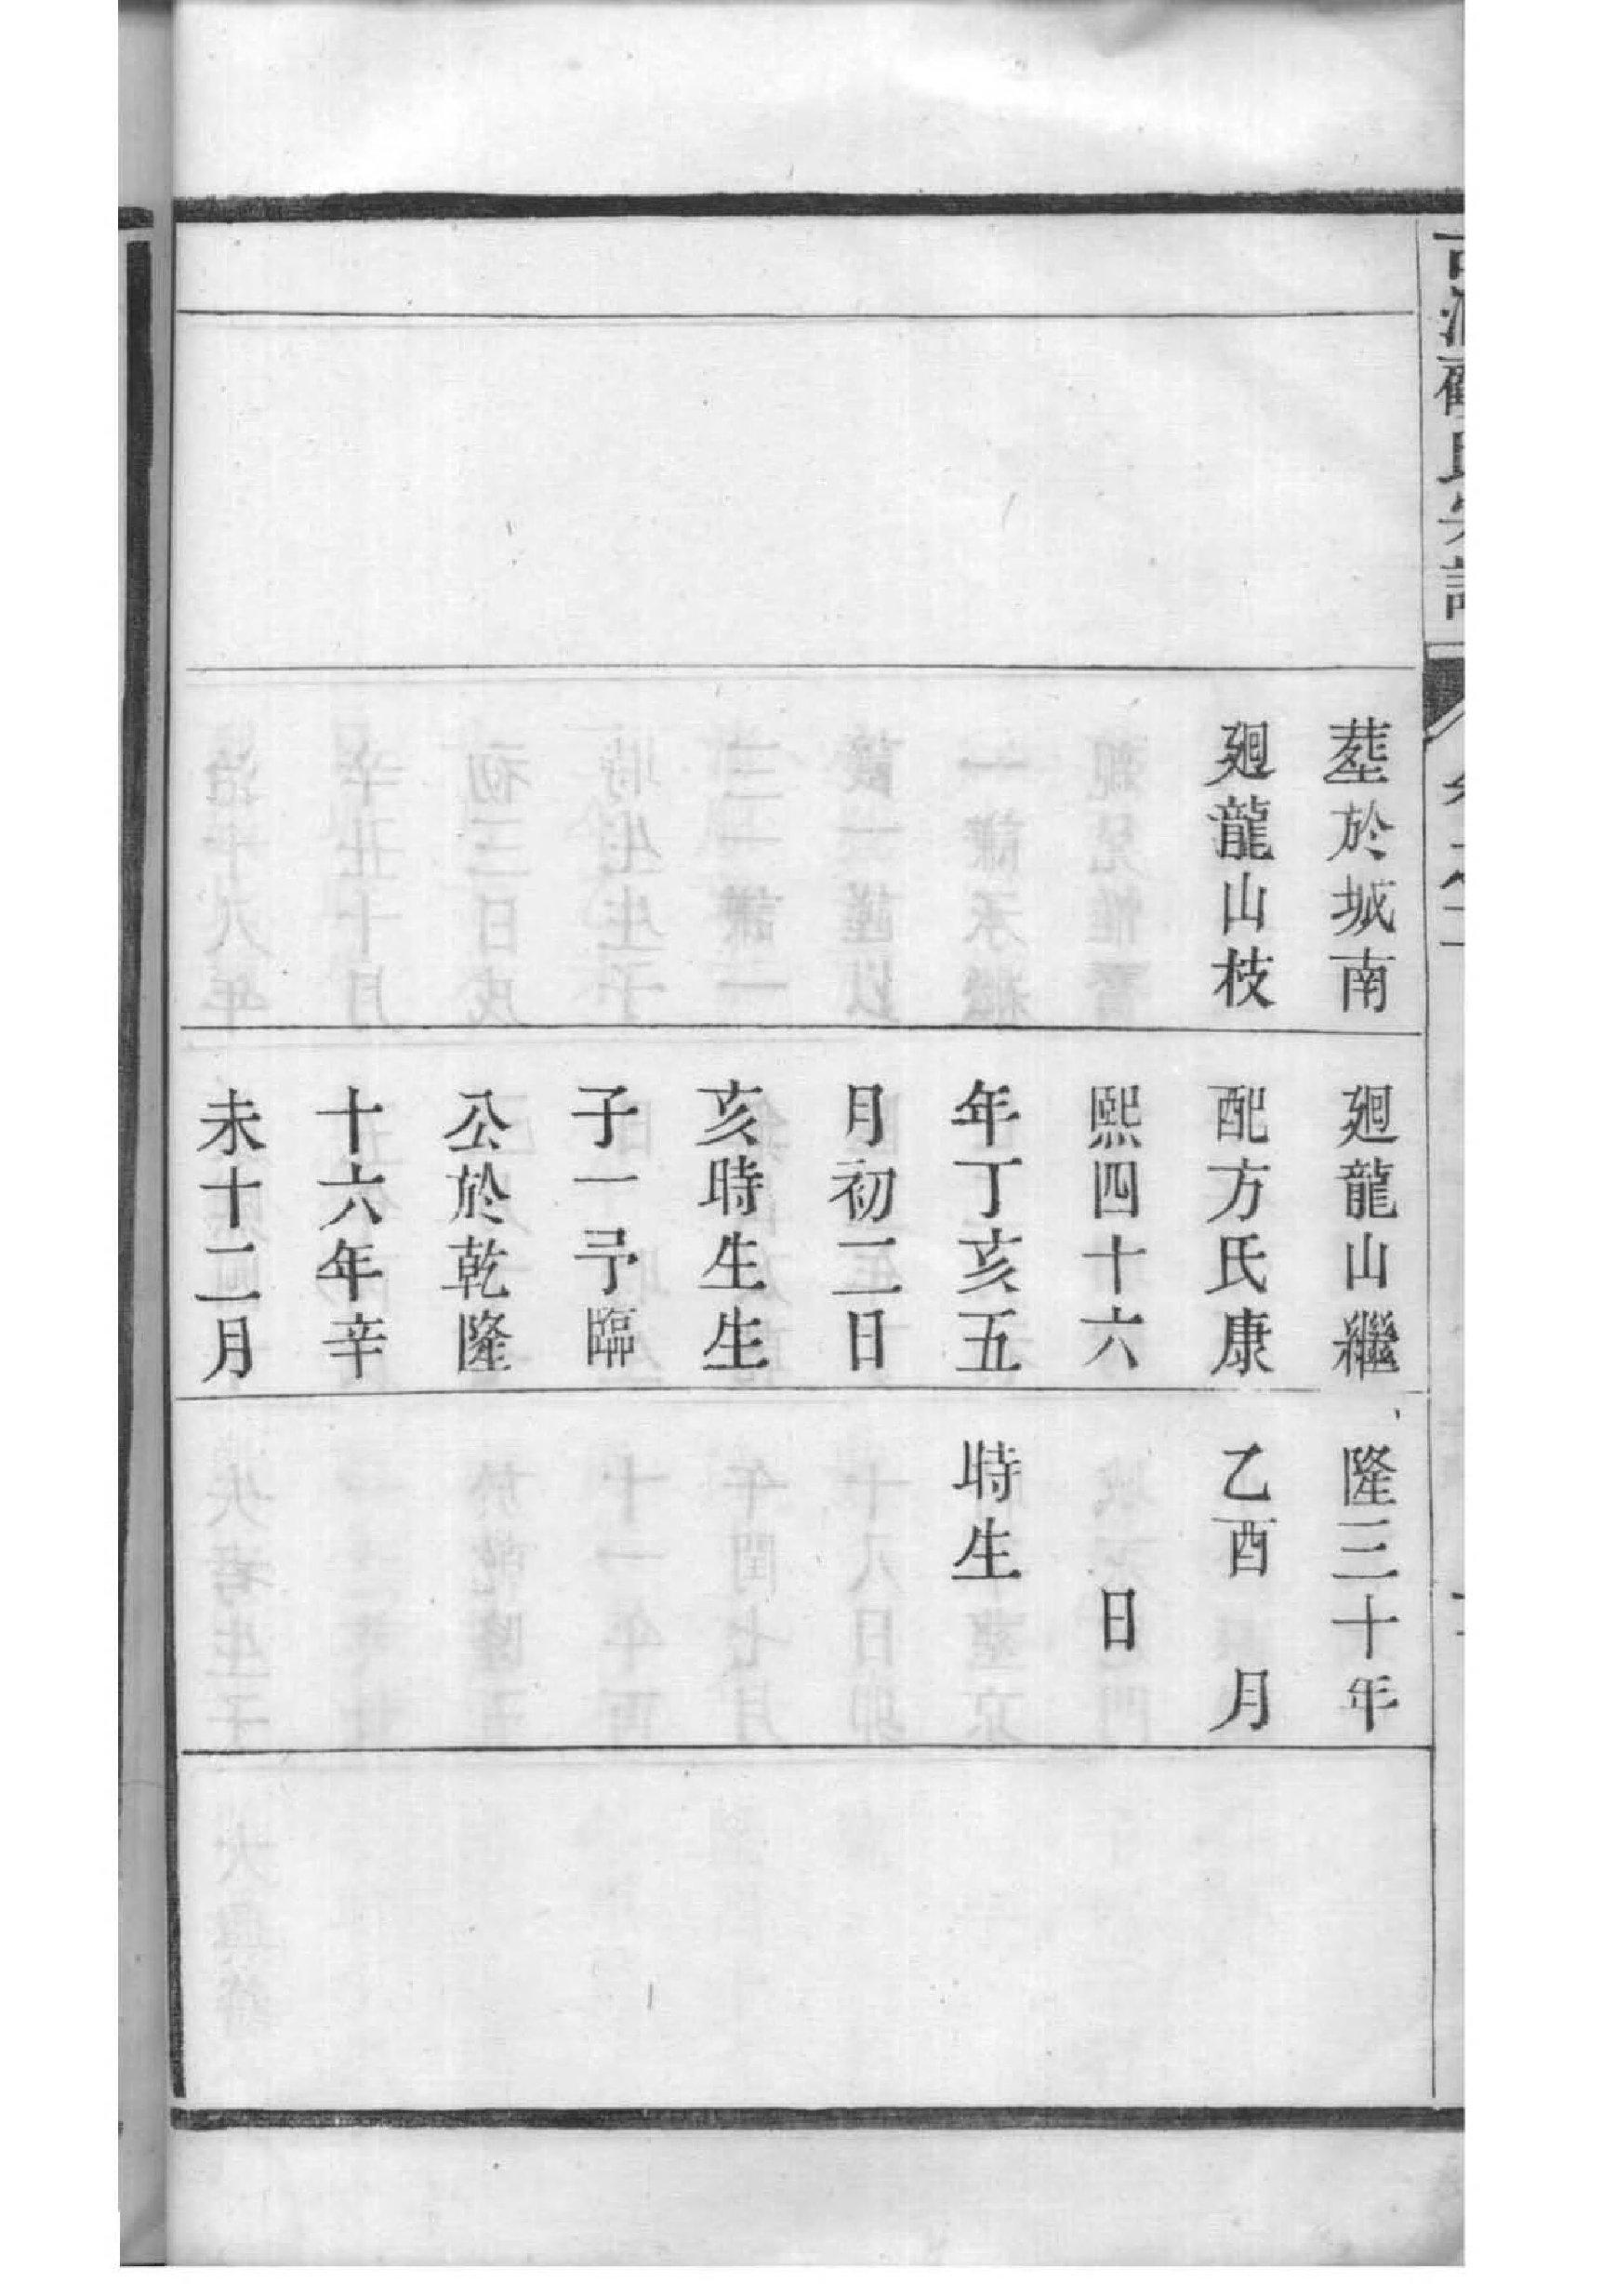 塟於城南
廻龍山枝
廻龍山繼
配方氏康
熙四十六
年丁亥五
月初二日
亥時生生
子一予臨
公於乾隆
十六年辛
未十二月
隆三十年
乙酉 月
日
時生